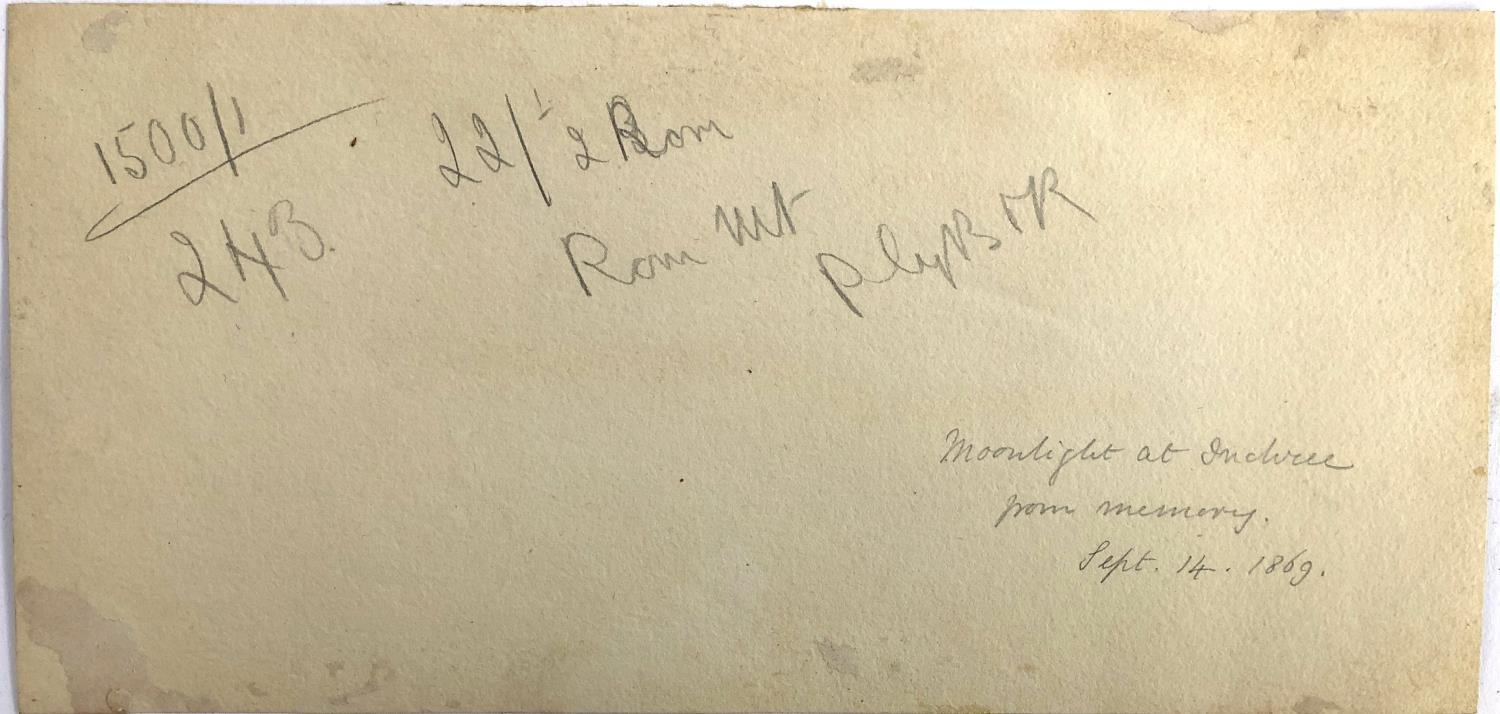 1500/1
22/ 1/2 Rom
243.
Rom Mt
Moonlight at Inchree
from memory.
Sept. 14. 1869.